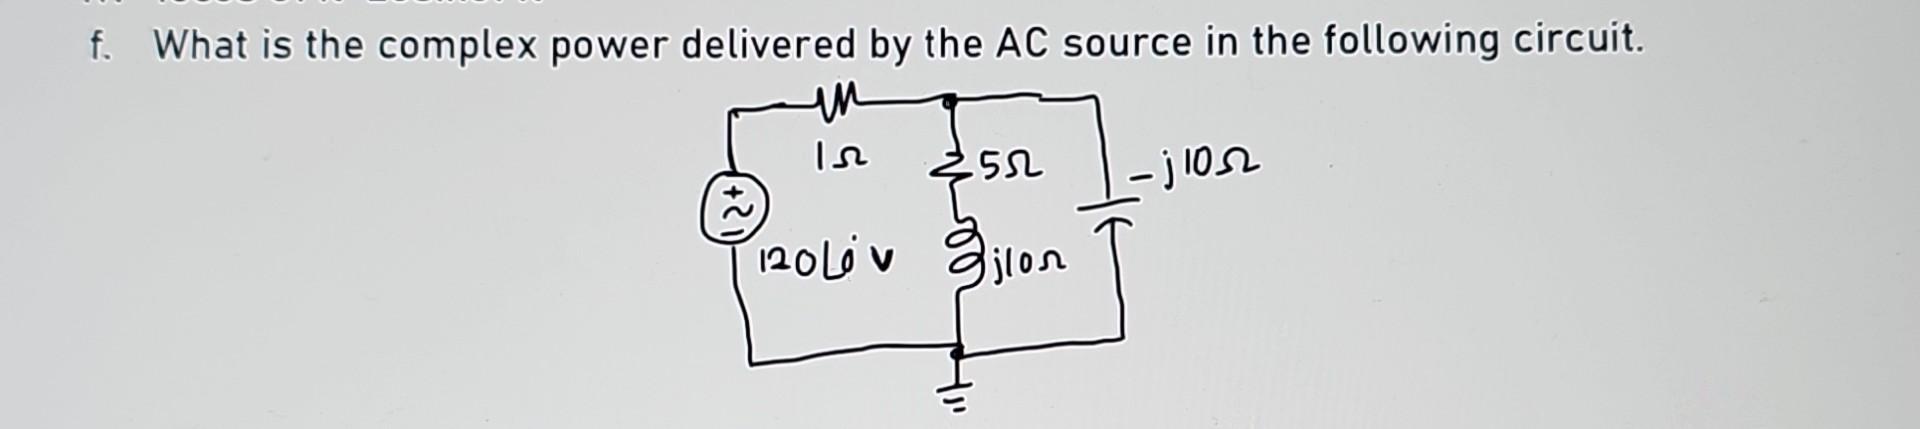 f. What is the complex power delivered by the AC source in the following circuit.
1Ω
5Ω
-j10Ω
+
~
-
120∠0° v
j10Ω